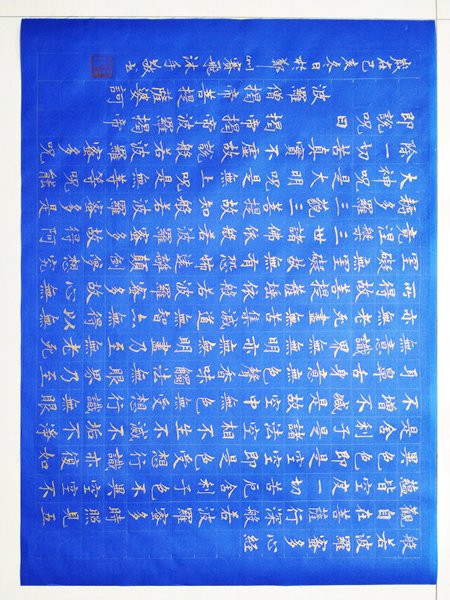 般若波羅蜜多心經
觀自在菩薩行深般若波羅蜜多時照見五
蘊皆空度一切苦厄舍利子色不異空空不
異色色即是空空即是色受想行識亦復如
是舍利子是諸法空相不生不滅不垢不淨
不增不減是故空中無色無受想行識無眼
耳鼻舌身意無色聲香味觸法無眼界乃至
無意識界無無明亦無無明盡乃至無老死
亦無老死盡無苦集滅道無智亦無得以無
所得故菩提薩埵依般若波羅蜜多故心無
罣礙無罣礙故無有恐怖遠離顛倒夢想究
竟涅槃三世諸佛依般若波羅蜜多故得阿
耨多羅三藐三菩提故知般若波羅蜜多是
大神咒是大明咒是無上咒是無等等咒能
除一切苦真實不虛故說般若波羅蜜多咒
即說咒曰 揭帝揭帝 波羅揭帝
波羅僧揭帝 菩提薩婆訶
歲在己亥冬日於鄭州 飛沐手敬書